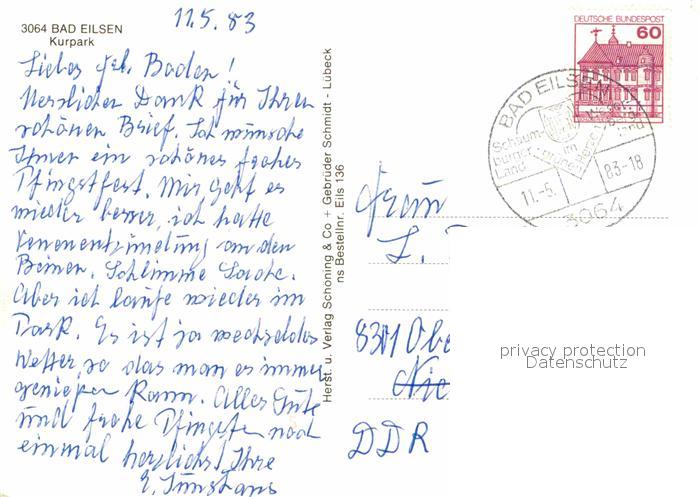 11.5.83
3064 BAD EILSEN
Kurpark
Liebes Frl. Baden!
Herzlichen Dank für Ihren
schönen Brief. Ich wünsche
Ihnen ein schönes frohes
Pfingstfest. Mir geht es
wieder besser, ich hatte
Venenentzündung an den
Beinen. Schlimme Sache.
Aber ich laufe wieder im
Park. Es ist ja wechselndes
Wetter so das man es immer
genießen kann. Alles Gute
und frohe Pfingsten noch
einmal herzlichst Ihre
E.
Herst. u. Verlag Schöning & Co + Gebrüder Schmidt - Lübeck
ns Bestellnr. Eils 136
DEUTSCHE BUNDESPOST
60
BAD EILSEN
Schaum-
burger
Land
im
grünen
Weser-
berg-
land
11.-5. 83-18
3064
Frau
L.
8301 Obe
Nie
DDR
privacy protection
Datenschutz